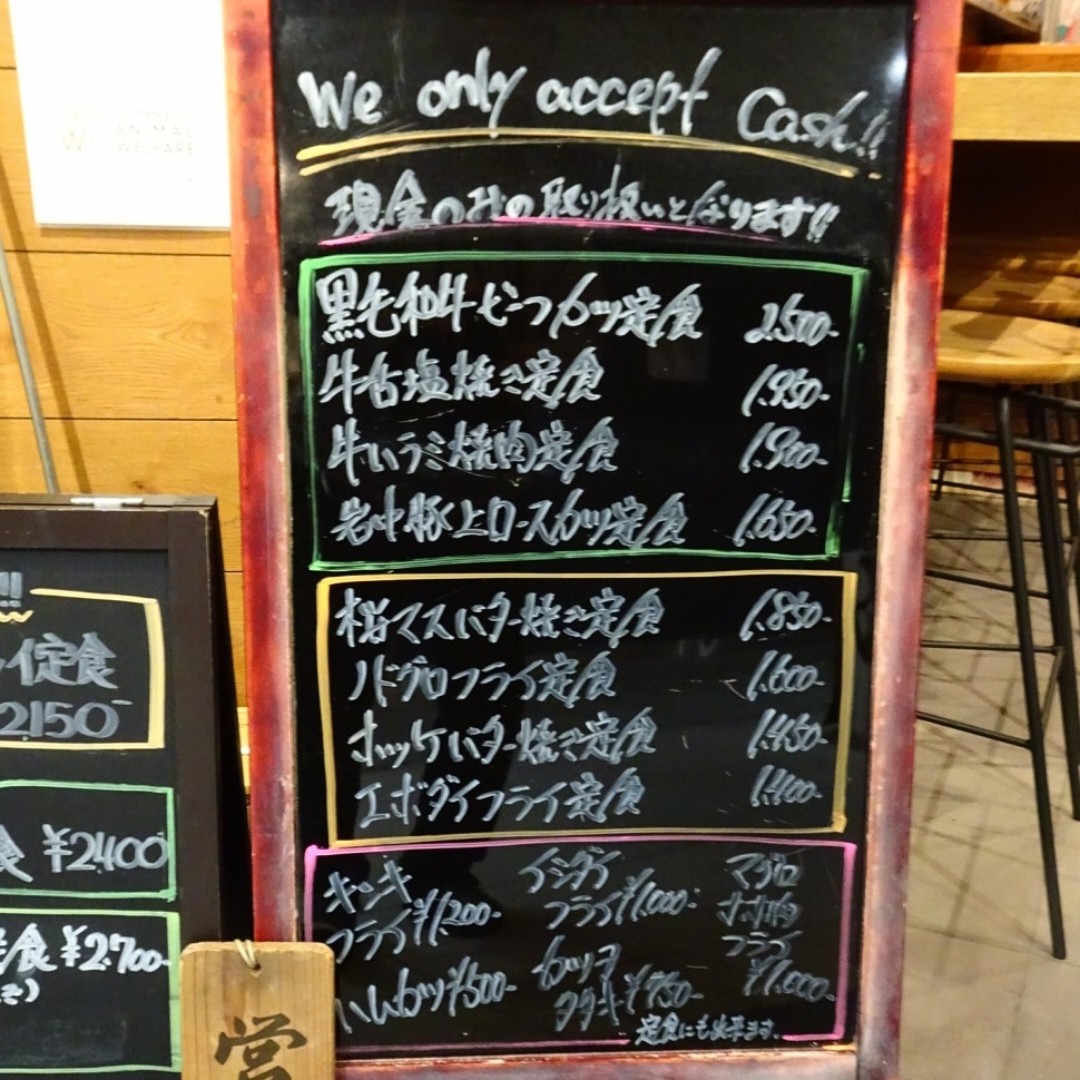 We only accept Cash!!
現金のみの取り扱いとなります!!
黒毛和牛ビーフカツ定食 2.500-
牛舌塩焼き定食 1.950-
牛ハラミ焼肉定食 1.900-
岩中豚上ロースカツ定食 1.650-
桜マスバター焼き定食 1.850-
ノドグロフライ定食 1.600-
ホッケバター焼き定食 1.450-
エボダイフライ定食 1.400-
キンキ
フライ ¥1,200-
イシダイ
フライ ¥1,000-
マグロ
ホホ肉
フライ
¥1,000-
ハムカツ ¥500-
カツヲ
タタキ ¥750-
定食にも出来ます。
イ定食
2150-
食 ¥2400
定食 ¥2.700-
営
ANIMAL
WELFARE